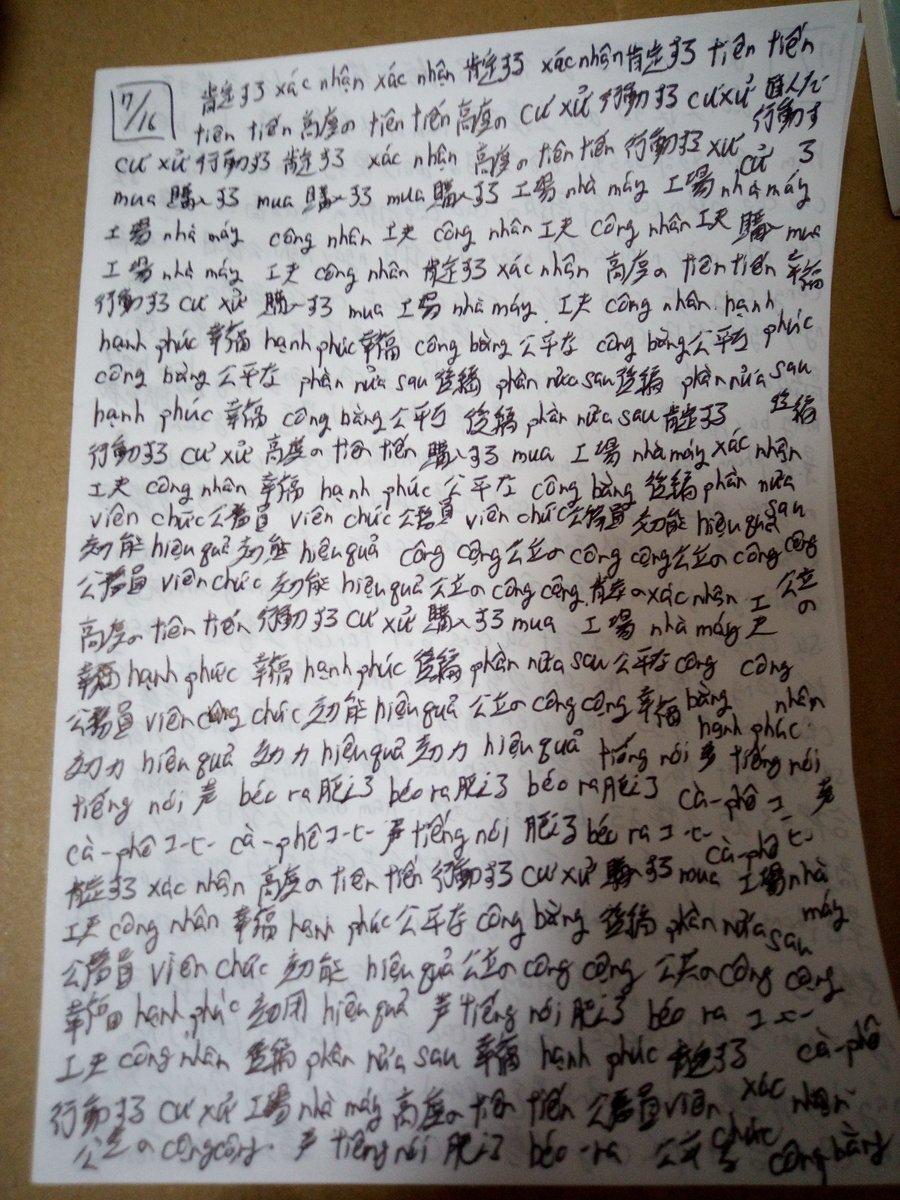 7/16
肯定する xác nhận xác nhận 肯定する xác nhận 肯定する tiên tiến
tiên tiến 高度の tiên tiến 高度の cư xử 行動する cư xử
cư xử 行動する 肯定する xác nhận 高度の tiên tiến 行動する xư xử 行動する
mua 購入する mua 購入する mua 購入する 工場 nhà máy 工場 nhà máy
工場 nhà máy công nhân 工夫 công nhân 工夫 công nhân 工夫 購入 mua
工場 nhà máy 工夫 công nhân 肯定する xác nhận 高度の tiên tiến 幸福
行動する cư xử 購入する mua 工場 nhà máy 工夫 công nhân hạnh
hạnh phúc 幸福 hạnh phúc 幸福 công bằng 公平な công bằng 公平な phúc
công bằng 公平な phần nửa sau 後編 phần nửa sau 後編 phần nửa sau
hạnh phúc 幸福 công bằng 公平な 後編 phần nửa sau 肯定する 後編
行動する cư xử 高度の tiên tiến 購入する mua 工場 nhà máy xác nhận
工夫 công nhân 幸福 hạnh phúc 公平な công bằng 後編 phần nửa
viên chức 公務員 viên chức 公務員 viên chức 公務員 効能 hiệu quả sau
効能 hiệu quả 効能 hiệu quả công cộng 公立の công cộng 公立の công cộng
公務員 viên chức 効能 hiệu quả 公立の công cộng 肯定の xác nhận 公立の
高度の tiên tiến 行動する cư xử 購入する mua 工場 nhà máy 工夫
幸福 hạnh phúc 幸福 hạnh phúc 後編 phần nửa sau 公平な công công
公務員 viên công chức 効能 hiệu quả 公立の công cộng 幸福 bằng nhân
効力 hiệu quả 効力 hiệu quả 効力 hiệu quả tiếng nói 声 tiếng nói hạnh phúc
tiếng nói 声 béo ra 肥える béo ra 肥える béo ra 肥える cà-phê コ 声
cà-phê コーヒー cà-phê コーヒー 声 tiếng nói 肥える béo ra コーヒー cà-phê ヒー
肯定する xác nhận 高度の tiên tiến 行動する cư xử 購入する mua 工場 nhà
工夫 công nhân 幸福 hạnh phúc 公平な công bằng 後編 phần nửa sau máy
公務員 viên chức 効能 hiệu quả 公立の công cộng 公共の công cộng
幸福 hạnh phúc hiệu quả 声 tiếng nói 肥える béo ra コーヒー
工夫 công nhân 後編 phần nửa sau 幸福 hạnh phúc 肯定する cà-phê
行動する cư xử 工場 nhà máy 高度の tiên tiến 公務員 viên xác nhận
公立の công cộng 声 tiếng nói 肥える béo ra 公平な chức công bằng